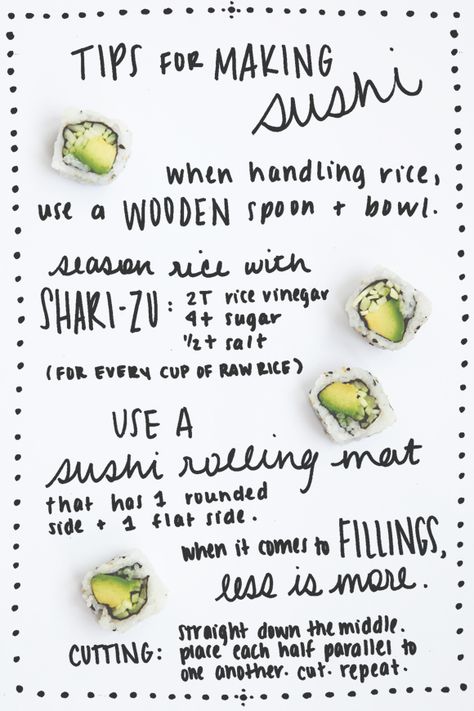 TIPS FOR MAKING
sushi
when handling rice,
use a WOODEN spoon + bowl.
season rice with
SHARI-ZU: 2T rice vinegar
4t sugar
½t salt
(FOR EVERY CUP OF RAW RICE)
USE A
sushi rolling mat
that has 1 rounded
side + 1 flat side.
when it comes to FILLINGS,
less is more.
CUTTING: straight down the middle.
place each half parallel to
one another. cut. repeat.